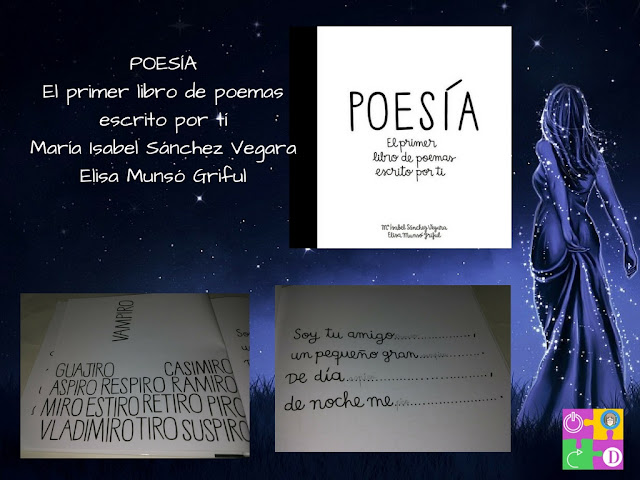 POESÍA
El primer libro de poemas
escrito por ti
María Isabel Sánchez Vegara
Elisa Munsó Griful
POESÍA
El primer
libro de poemas
escrito por ti
Mª Isabel Sánchez Vegara
Elisa Munsó Griful
VAMPIRO
GUAJIRO CASIMIRO
ASPIRO RESPIRO RAMIRO
MIRO ESTIRO RETIRO PIRO
VLADIMIRO TIRO SUSPIRO
Soy tu amigo..................,
un pequeño gran..................,
De día..................,
de noche me..................
D